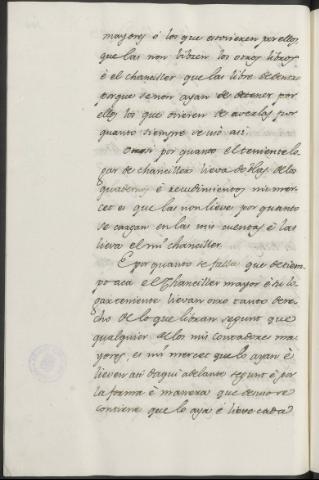 mayores ó los que estovieren por ellos,
que las non libren los otros libros
é el chanciller que las libre de venta
porque se non ayan de detener por
ellos los que ovieren de averlas por
quanto siempre se usó asi.
Otrosi por quanto el teniente lo
gar de chanciller lieva de las de los
quadernos é recudimientos mi mer
cet es que las non lieve por quanto
se cargan en las mis cuentas é las
lieva el mi chanciller.
E por quanto se falla que de tiem
po acá el Chanciller mayor é su lo
garteniente lievan otro tanto dere
cho de lo que libran segunt que
qualquier de los mis contadores ma
yores, es mi mercet que lo ayan é
lieven asi daqui adelante segunt é por
la forma é manera que deuso se
contiene que lo aya é lieve cada